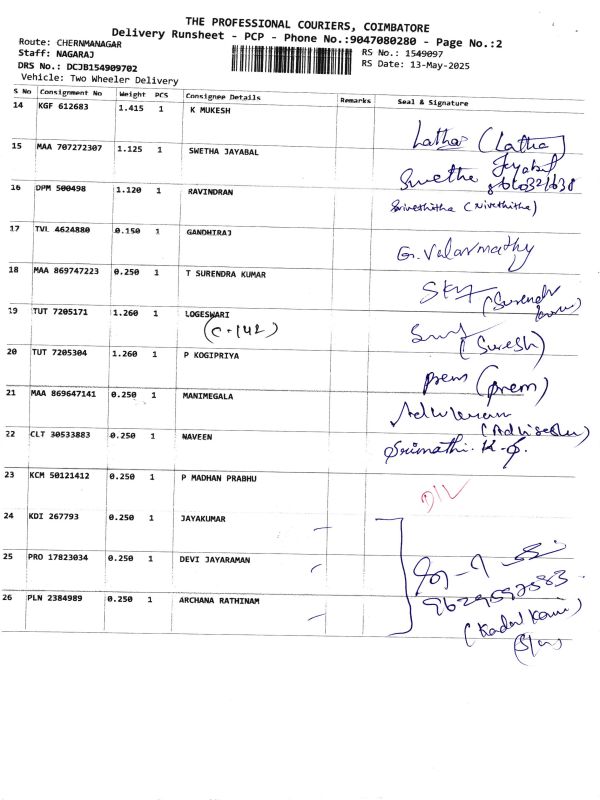 THE PROFESSIONAL COURIERS, COIMBATORE
Delivery Runsheet - PCP - Phone No.:9047080280 - Page No.:2
Route: CHERNMANAGAR
Staff: NAGARAJ
RS No.: 1549097
DRS No.: DCJB154909702
RS Date: 13-May-2025
Vehicle: Two Wheeler Delivery
S No Consignment No Weight PCS Consignee Details Remarks Seal & Signature
14 KGF 612683 1.415 1 K MUKESH
Latha (Latha)
15 MAA 707272307 1.125 1 SWETHA JAYABAL
Swetha Jayabal
16 DPM 500498 1.120 1 RAVINDRAN
(Nivethitha)
17 TVL 4624880 0.150 1 GANDHIRAJ
G. Valarmathy
18 MAA 869747223 0.250 1 T SURENDRA KUMAR
19 TUT 7205171 1.260 1 LOGESWARI
(C-142)
(Suresh)
20 TUT 7205304 1.260 1 P KOGIPRIYA
prem (prem)
21 MAA 869647141 0.250 1 MANIMEGALA
22 CLT 30533883 0.250 1 NAVEEN
Srimathi. K.
23 KCM 50121412 0.250 1 P MADHAN PRABHU
D/L
24 KDI 267793 0.250 1 JAYAKUMAR
25 PRO 17823034 0.250 1 DEVI JAYARAMAN
26 PLN 2384989 0.250 1 ARCHANA RATHINAM